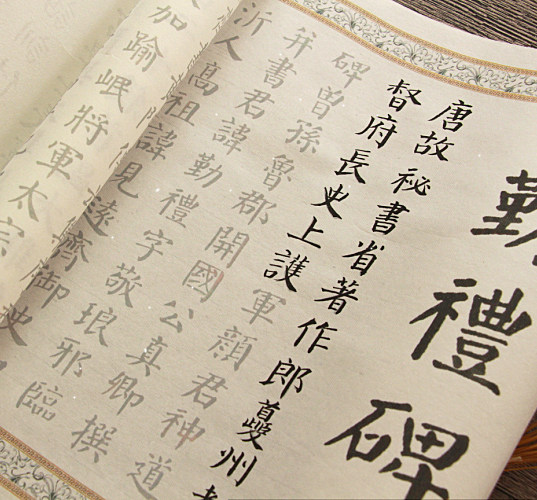 勤禮碑
唐故祕書省著作郎夔州
督府長史上護軍顏君神道
碑曾孫魯郡開國公真卿撰
并書君諱勤禮字敬琅邪臨
沂人高祖諱見遠齊御
加踰岷將軍太宗